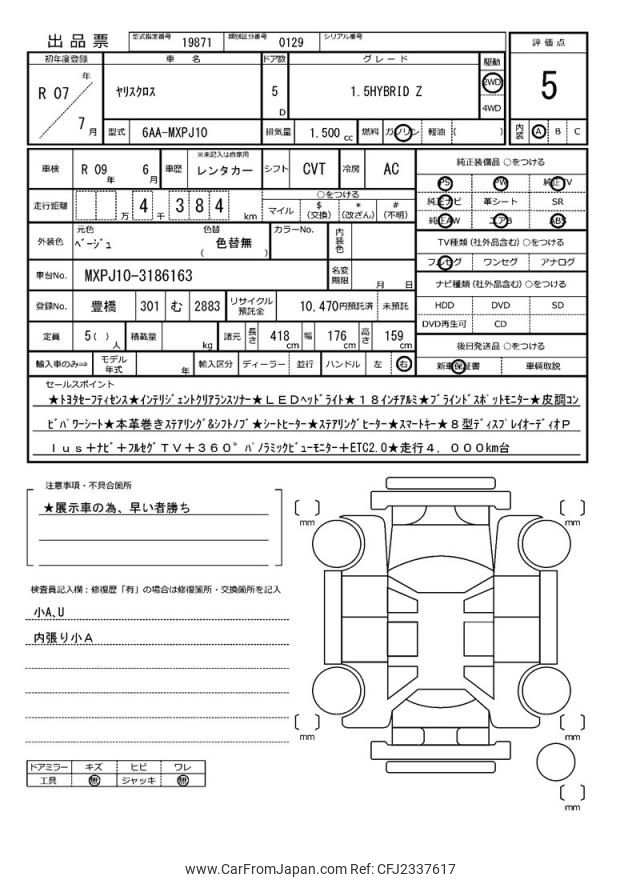 出品票 型式指定番号 19871 類別区分番号 0129 シリアル番号
初年度登録 車名 ドア数 グレード 駆動 評価点
R 07 年 7 月 ヤリスクロス 5 D 1.5HYBRID Z 2WD 4WD 5
型式 6AA-MXPJ10 排気量 1.500 cc 燃料 ガソリン 軽油 ( ) 内装 A B C
車検 R 09 年 6 月 車歴 ※未記入は自家用 レンタカー シフト CVT 冷房 AC
走行距離 万 4 千 3 8 4 km ○をつける マイル $ (交換) * (改ざん) # (不明)
外装色 元色 ベージュ 色替 色替無 ( ) カラーNo. 内装色
車台No. MXPJ10-3186163 名変期限 月 日
登録No. 豊橋 301 む 2883 リサイクル預託金 10.470円預託済 未預託
定員 5( ) 人 積載量 kg 諸元 長さ 418 cm 幅 176 cm 高さ 159 cm
輸入車のみ⇒ モデル年式 年 輸入区分 ディーラー 並行 ハンドル 左 右
純正装備品 ○をつける
PS PW 純正TV
純正ナビ 革シート SR
純正AW エアB ABS
TV種類(社外品含む) ○をつける
フルセグ ワンセグ アナログ
ナビ種類(社外品含む) ○をつける
HDD DVD SD
DVD再生可 CD
後日発送品 ○をつける
新車保証書 車輌取説
セールスポイント
★トヨタセーフティセンス★インテリジェントクリアランスソナー★LEDヘッドライト★18インチアルミ★ブラインドスポットモニター★皮調コン
ビパワーシート★本革巻きステアリング&シフトノブ★シートヒーター★ステアリングヒーター★スマートキー★8型ディスプレイオーディオP
lus+ナビ+フルセグTV+360°パノラミックビューモニター+ETC2.0★走行4，000km台
注意事項・不具合箇所
★展示車の為、早い者勝ち
検査員記入欄：修復歴「有」の場合は修復箇所・交換箇所を記入
小A,U
内張り小A
ドアミラー キズ ヒビ ワレ
工具 無 ジャッキ 無
mm
mm
mm
mm
mm
www.CarFromJapan.com Ref: CFJ2337617